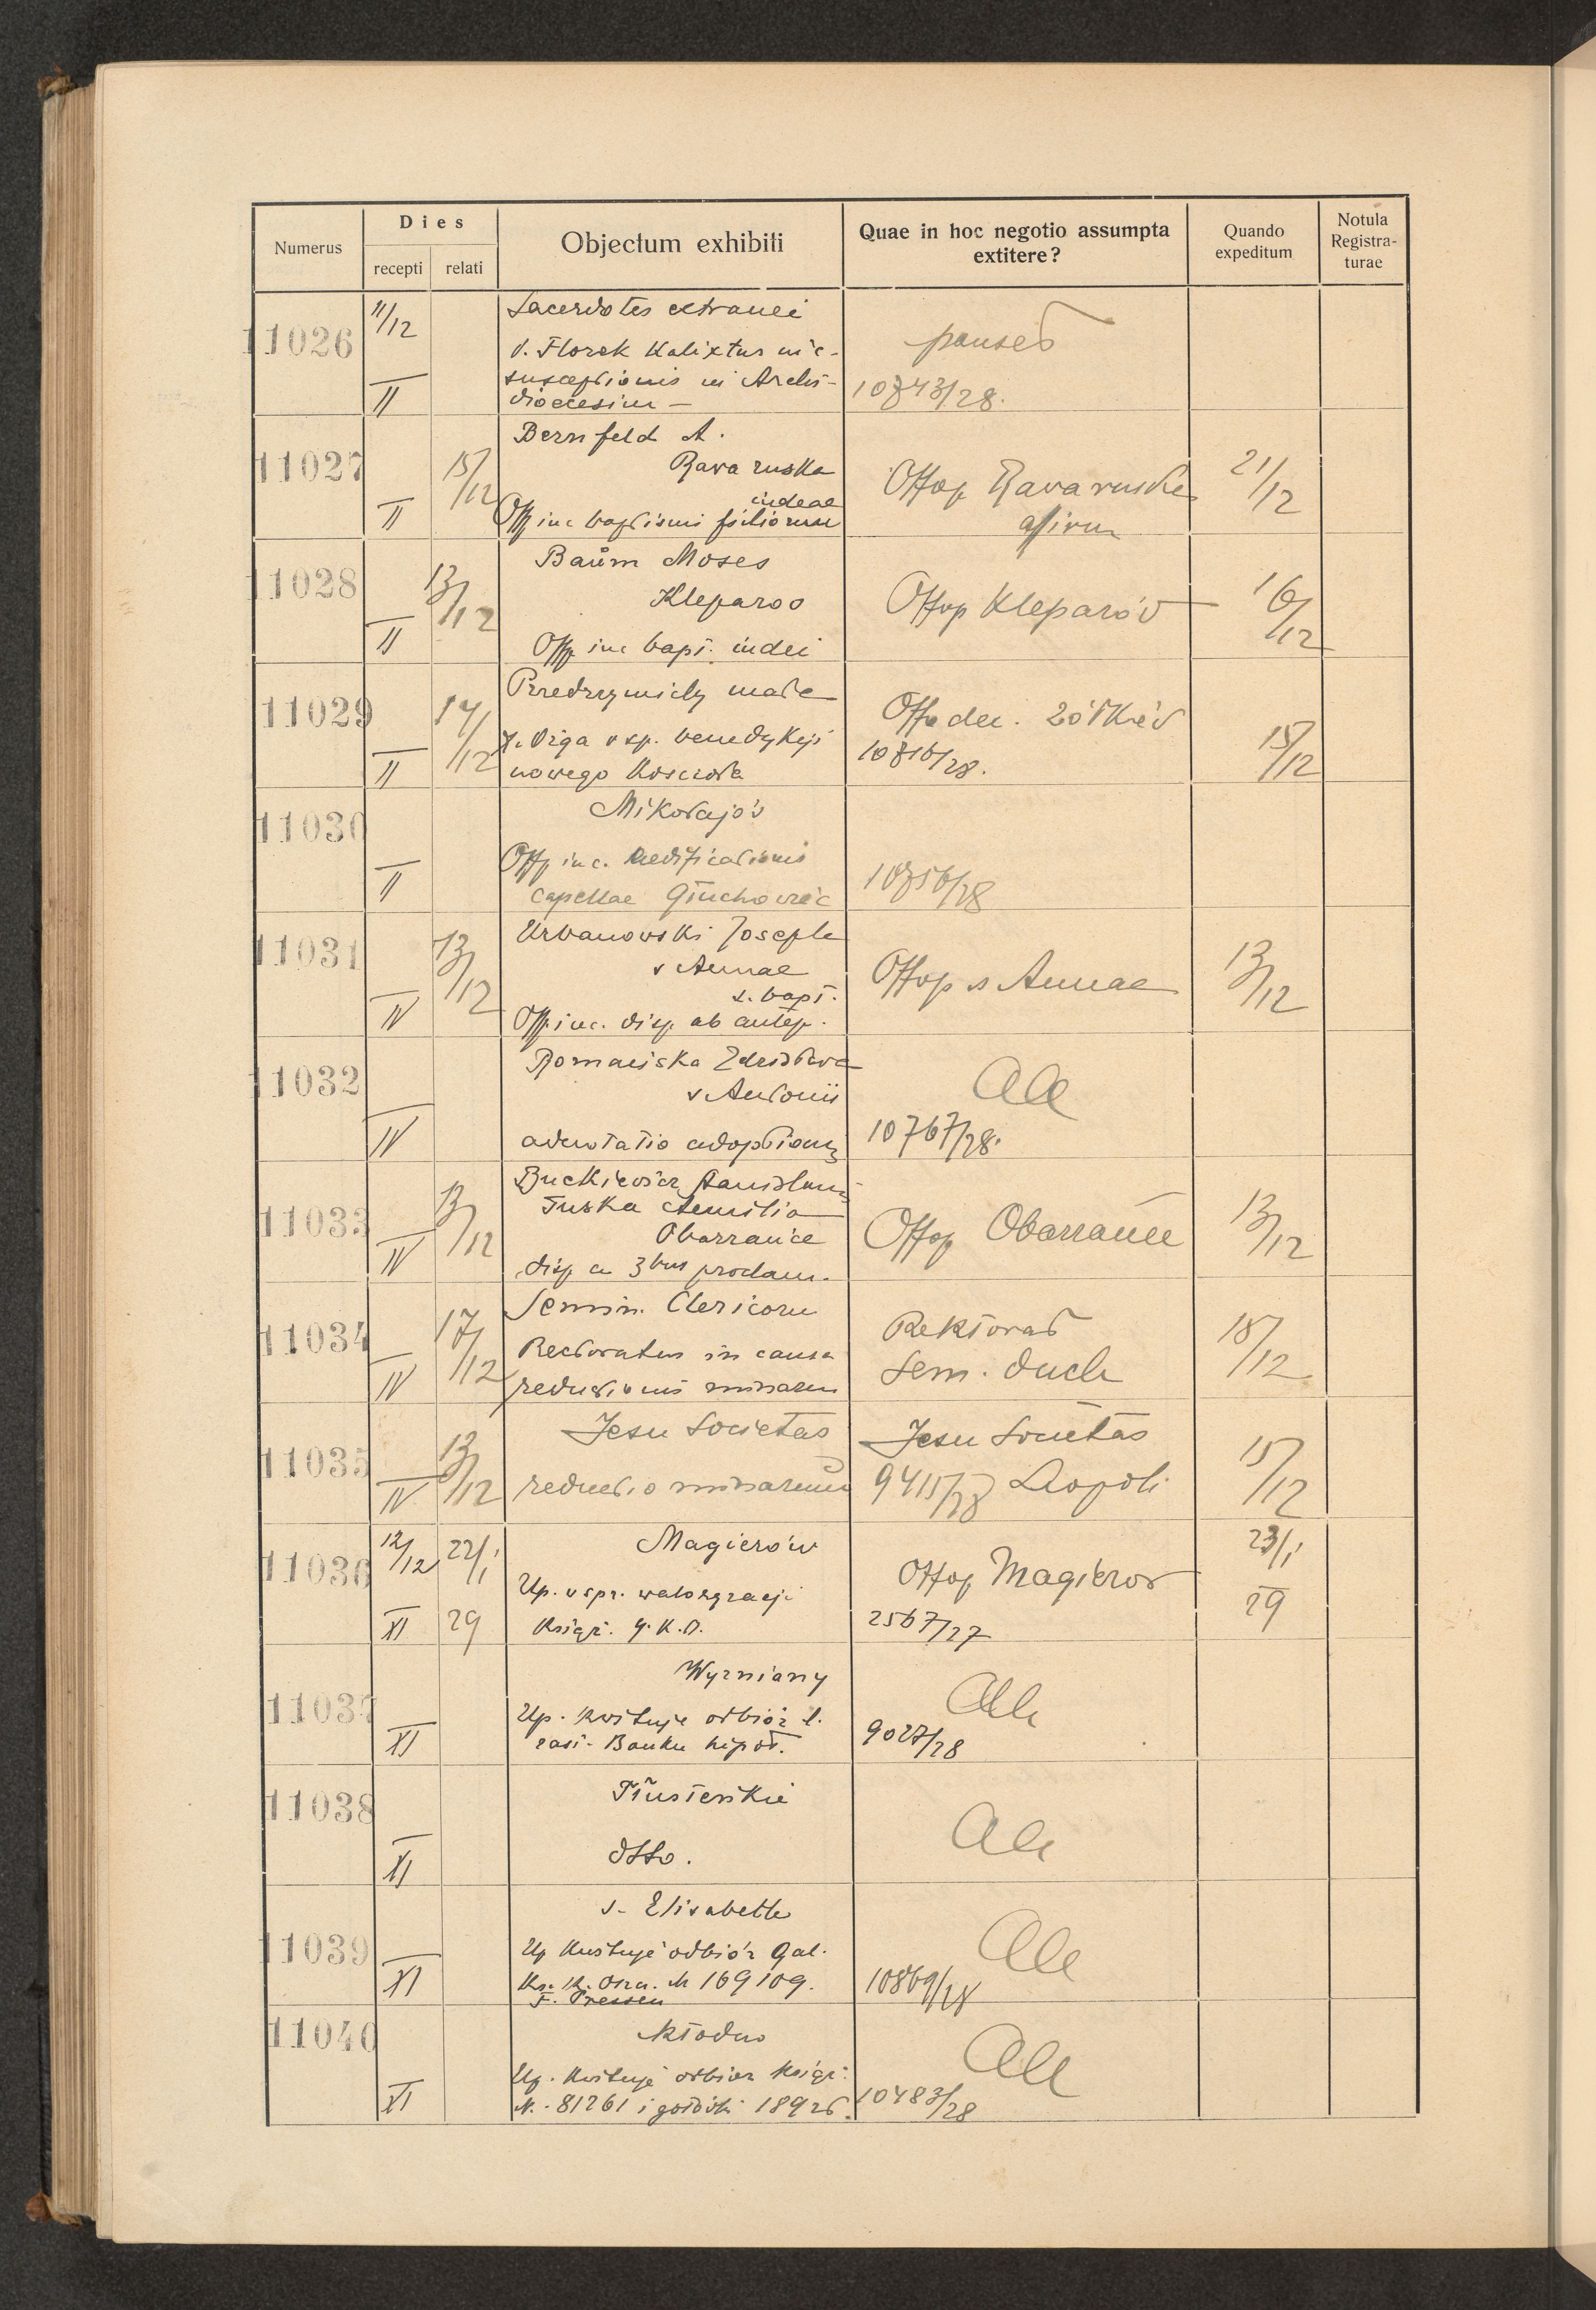 Numerus
Dies
recepti
relati
Objectum exhibiti
Quae in hoc negotio assumpta
extitere?
Quando
expeditum
Notula
Registra-
turae
11026
11/12
II
Sacerdotes extranei
Florek Kalixtus
susceptionis in Archi-
dioecesim -
10843/28.
11027
II
15/12
Bernfeld A.
Rava ruska
iudeae
Offp inc baptismi filiorum
Offop Rava ruska
21/12
11028
II
13/12
Baum Moses
Kleparoo
Offp inc bapt. iudei
Offop Kleparów
16/12
11029
II
14/12
Przedrzymichy małe
benedykcji
nowego Kościoła
dec. Żółkiew
10816/28.
15/12
11030
II
Mikołajów
Offp inc. aedificationis
capellae Głuchowiec
10756/28
11031
IV
13/12
Urbanowski Joseph
s Annae
s. bapt.
Offp inc. disp. ab antep.
Offop s Annae
13/12
11032
IV
Romańska Zdzisława
s Antonii
adnotatio adoptionis
All
10767/28.
11033
IV
13/12
Buckiewicz Stanislaus
Tuska Aemilia
Obarzańce
disp a 3bus proclam.
Offop Obarzańce
13/12
11034
IV
17/12
Semin. Clericoru
Rectoratus in causa
reductionis missarum
Rektorat
Sem. duch
18/12
11035
IV
13/12
Jesu Societas
reductio missarum
Jesu Societas
9415/28 Leopoli
15/12
11036
12/12
XI
22/1
29
Magierów
Up. w spr. waloryzacji
Książ. G.K.O.
Offop Magierow
2567/27
23/1
29
11037
XI
Wyżniany
Up. kwituje odbiór l.
zast. Banku hipot.
All
9027/28
11038
XI
Tłusteńkie
dtto.
All
11039
XI
s. Elisabeth
Up kwituje odbiór Gal.
Ks. K. Osz. N 169109.
F. Pressen
All
10869/28
11040
XI
Kłodno
Up. Kwituje odbior Książ.
N. 81261 i gotówki
All
10483/28